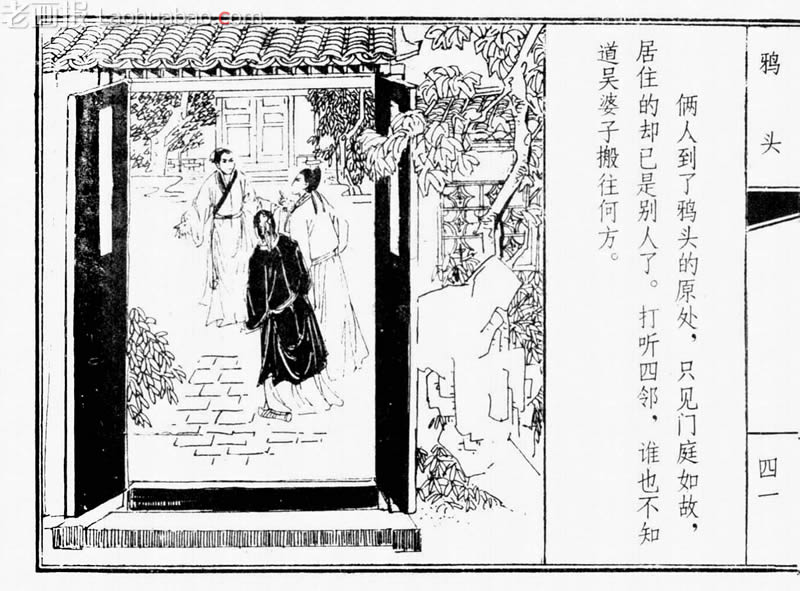 老画报 Laohuabao.com
俩人到了鸦头的原处，只见门庭如故，
居住的却已是别人了。打听四邻，谁也不知
道吴婆子搬往何方。
鸦头
四一